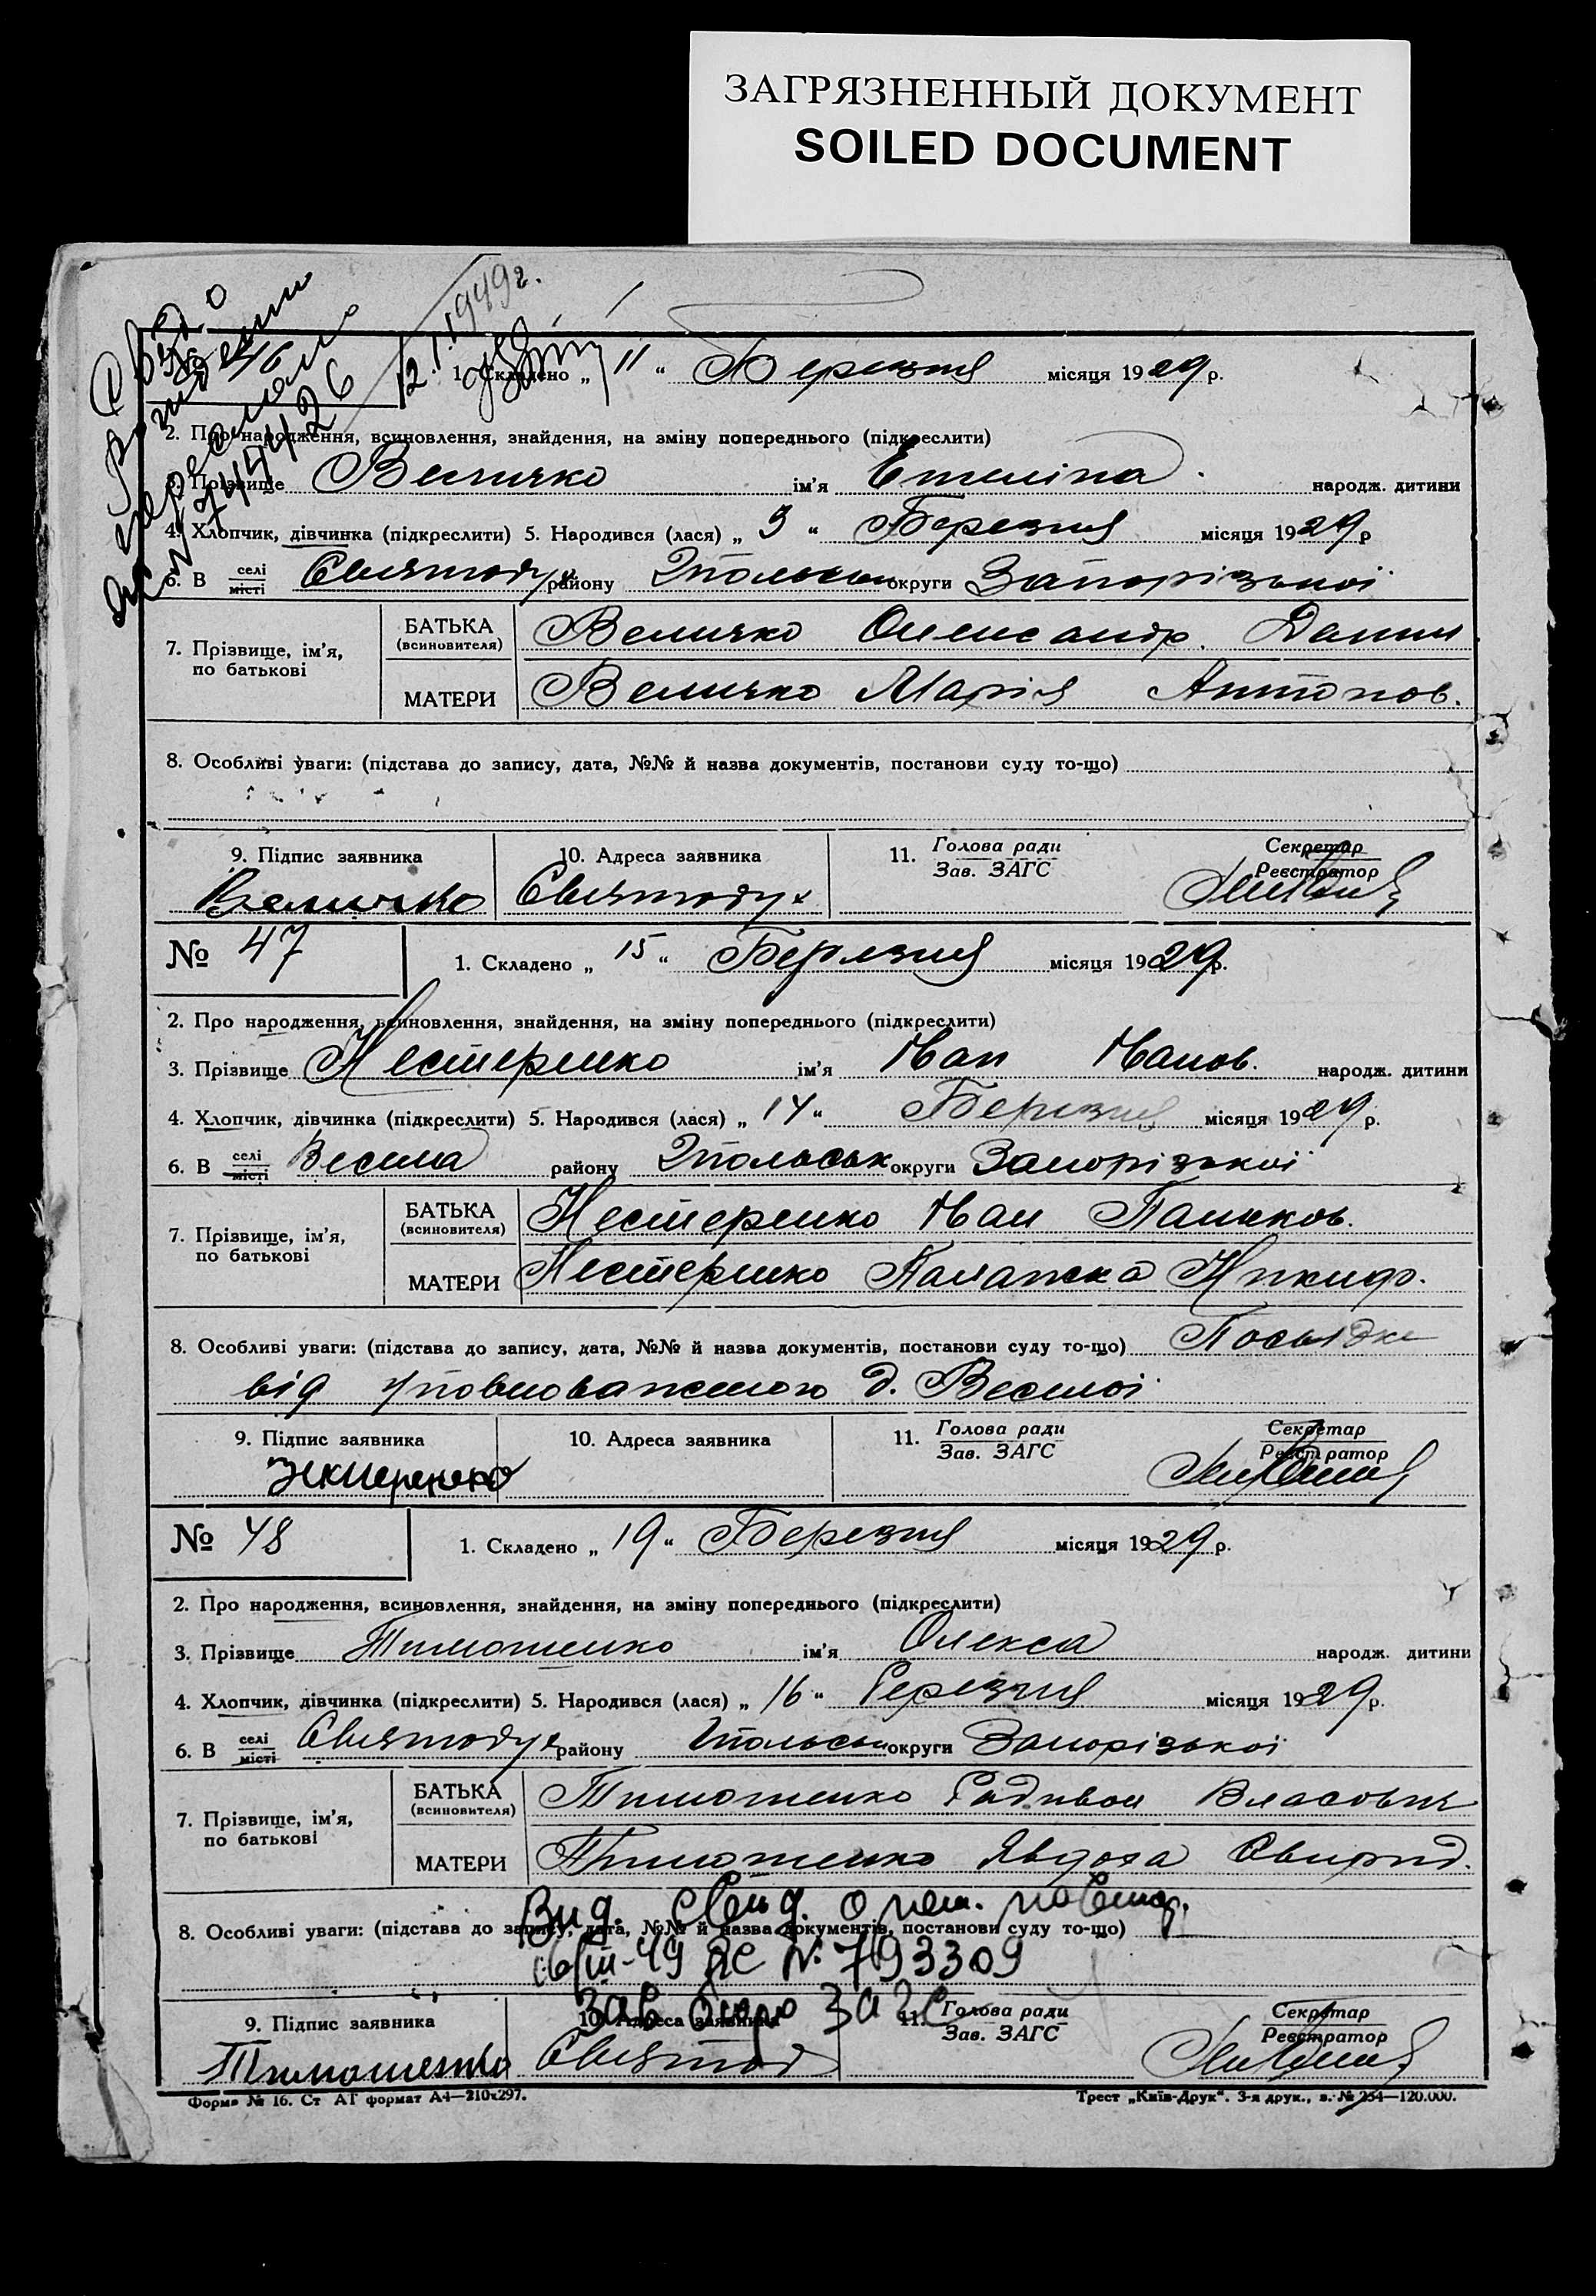 ЗАГРЯЗНЕННЫЙ ДОКУМЕНТ
SOILED DOCUMENT
12.I.1949г.
№ 46
1. Складено „ 11 “ Березня місяця 1929 р.
2. Про народження, всиновлення, знайдення, на зміну попереднього (підкреслити)
3. Прізвище Величко ім’я народж. дитини
4. Хлопчик, дівчинка (підкреслити) 5. Народився (лася) „ 3 “ Березня місяця 1929 р
6. В селі місті Святодух району округи Запорізької
7. Прізвище, ім’я, по батькові
БАТЬКА (всиновителя) Величко Олександр. Данил.
МАТЕРИ Величко Марія Антонов.
8. Особливі уваги: (підстава до запису, дата, №№ й назва документів, постанови суду то-що)
9. Підпис заявника 10. Адреса заявника 11. Голова ради Зав. ЗАГС Секретар Реєстратор
Величко Святодух
№ 47
1. Складено „ 15 “ Березня місяця 1929 р.
2. Про народження, всиновлення, знайдення, на зміну попереднього (підкреслити)
3. Прізвище Нестеренко ім’я Іван Іванов. народж. дитини
4. Хлопчик, дівчинка (підкреслити) 5. Народився (лася) „ 14 “ Березня місяця 1929 р.
6. В селі місті Весела району округи Запорізької
7. Прізвище, ім’я, по батькові
БАТЬКА (всиновителя) Нестеренко Іван
МАТЕРИ Нестеренко Палажка Никиф.
8. Особливі уваги: (підстава до запису, дата, №№ й назва документів, постанови суду то-що) Посвідка
від уповноваженого д. Веселої
9. Підпис заявника 10. Адреса заявника 11. Голова ради Зав. ЗАГС Секретар Реєстратор
№ 48
1. Складено „ 19 “ Березня місяця 1929 р.
2. Про народження, всиновлення, знайдення, на зміну попереднього (підкреслити)
3. Прізвище Тимошенко ім’я Олекса народж. дитини
4. Хлопчик, дівчинка (підкреслити) 5. Народився (лася) „ 16 “ Березня місяця 1929 р.
6. В селі місті Святодух району округи Запорізької
7. Прізвище, ім’я, по батькові
БАТЬКА (всиновителя) Тимошенко Радивон Власович
МАТЕРИ Тимошенко Явдоха Свирид.
Вид. свид. о рож. повтор.
8. Особливі уваги: (підстава до запису, дата, №№ й назва документів, постанови суду то-що)
16/III-49 ЯС № 793309
Зав бюро ЗАГС
9. Підпис заявника 10. Адреса заявника 11. Голова ради Зав. ЗАГС Секретар Реєстратор
Тимошенко Святод
Форма № 16. Ст АТ формат А4—210х297. Трест „Київ-Друк“. 3-я друк., з. № 254—120.000.